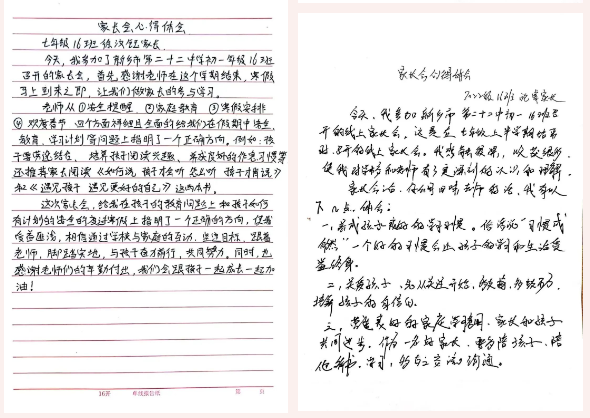 家长会心得体会
七年级16班 家长
今天，我参加了新乡市第二十二中学初一年级16班
召开的家长会，首先感谢老师在这个学期结束，寒假
马上到来之即，让我们做家长的参与学习。
老师从①安全提醒 ②家庭教育 ③寒假安排
④欢度春节 四个方面详细且全面的给我们在假期中安全，
教育，学习计划等问题上指明了一个正确方向，例如：孩
子劳逸结合，培养孩子阅读兴趣，养成良好的作息习惯等
还推荐家长阅读《如何说，孩子才会听 怎么听 孩子才肯说》
和《遇见孩子 遇见更好的自己》这两本书。
这次家长会，给我在孩子的教育问题上和孩子如何
有计划的安全的度过寒假上指明了一个正确的方向，使我
受益匪浅，相信通过学校与家庭的互动，
老师，脚踏实地，与孩子在方前行，共同努力，同时，也
感谢老师们的辛勤付出，我们会跟孩子一起成长一起加
油！
16开 单线报告纸 第 页
家长会心得体会
2022级16班 家长
今天，我参加新乡市第二十二中初一16班召
开的线上家长会，这是在七年级上半学期结束
时召开的线上家长会。我感触很深，收获很多，
使我对学校和老师有了更深刻的认识和理解。
家长会后，仔细回味老师的话，我有以
下几点体会：
一、养成孩子良好的学习习惯。俗话说"习惯成
自然"一个好的习惯会让孩子的学习和生活受
益终身。
二、关爱孩子，先从关注开始，
培养孩子的自信心。
三、营造良好的家庭学习氛围，家长和孩子
共同进步，作为一名好家长，要多陪孩子，陪
他读书、学习，多与之交流沟通。